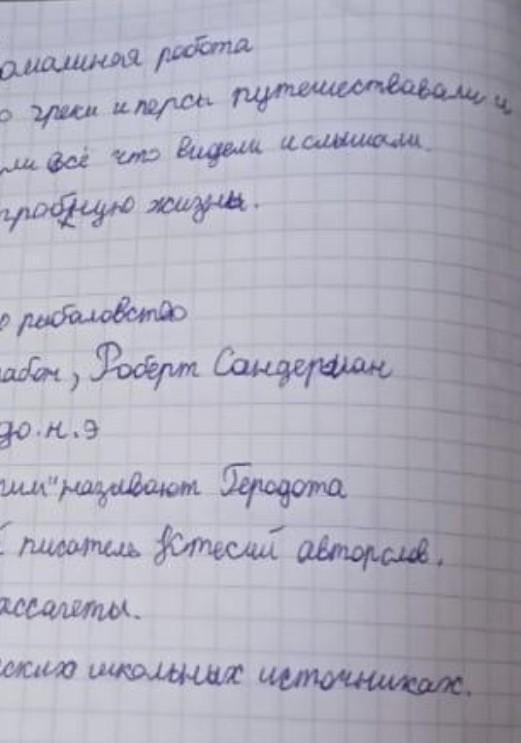 омашная работа
о греки и персы путешествавали и
ли всё что видели и слышали.
гробную жизнь.
о рыбаловство
абон, Роберт Сандерман
до.н.э
ии" называют Геродота
писатель Ктесий авторслов.
ассагеты.
ских школьных источниках.